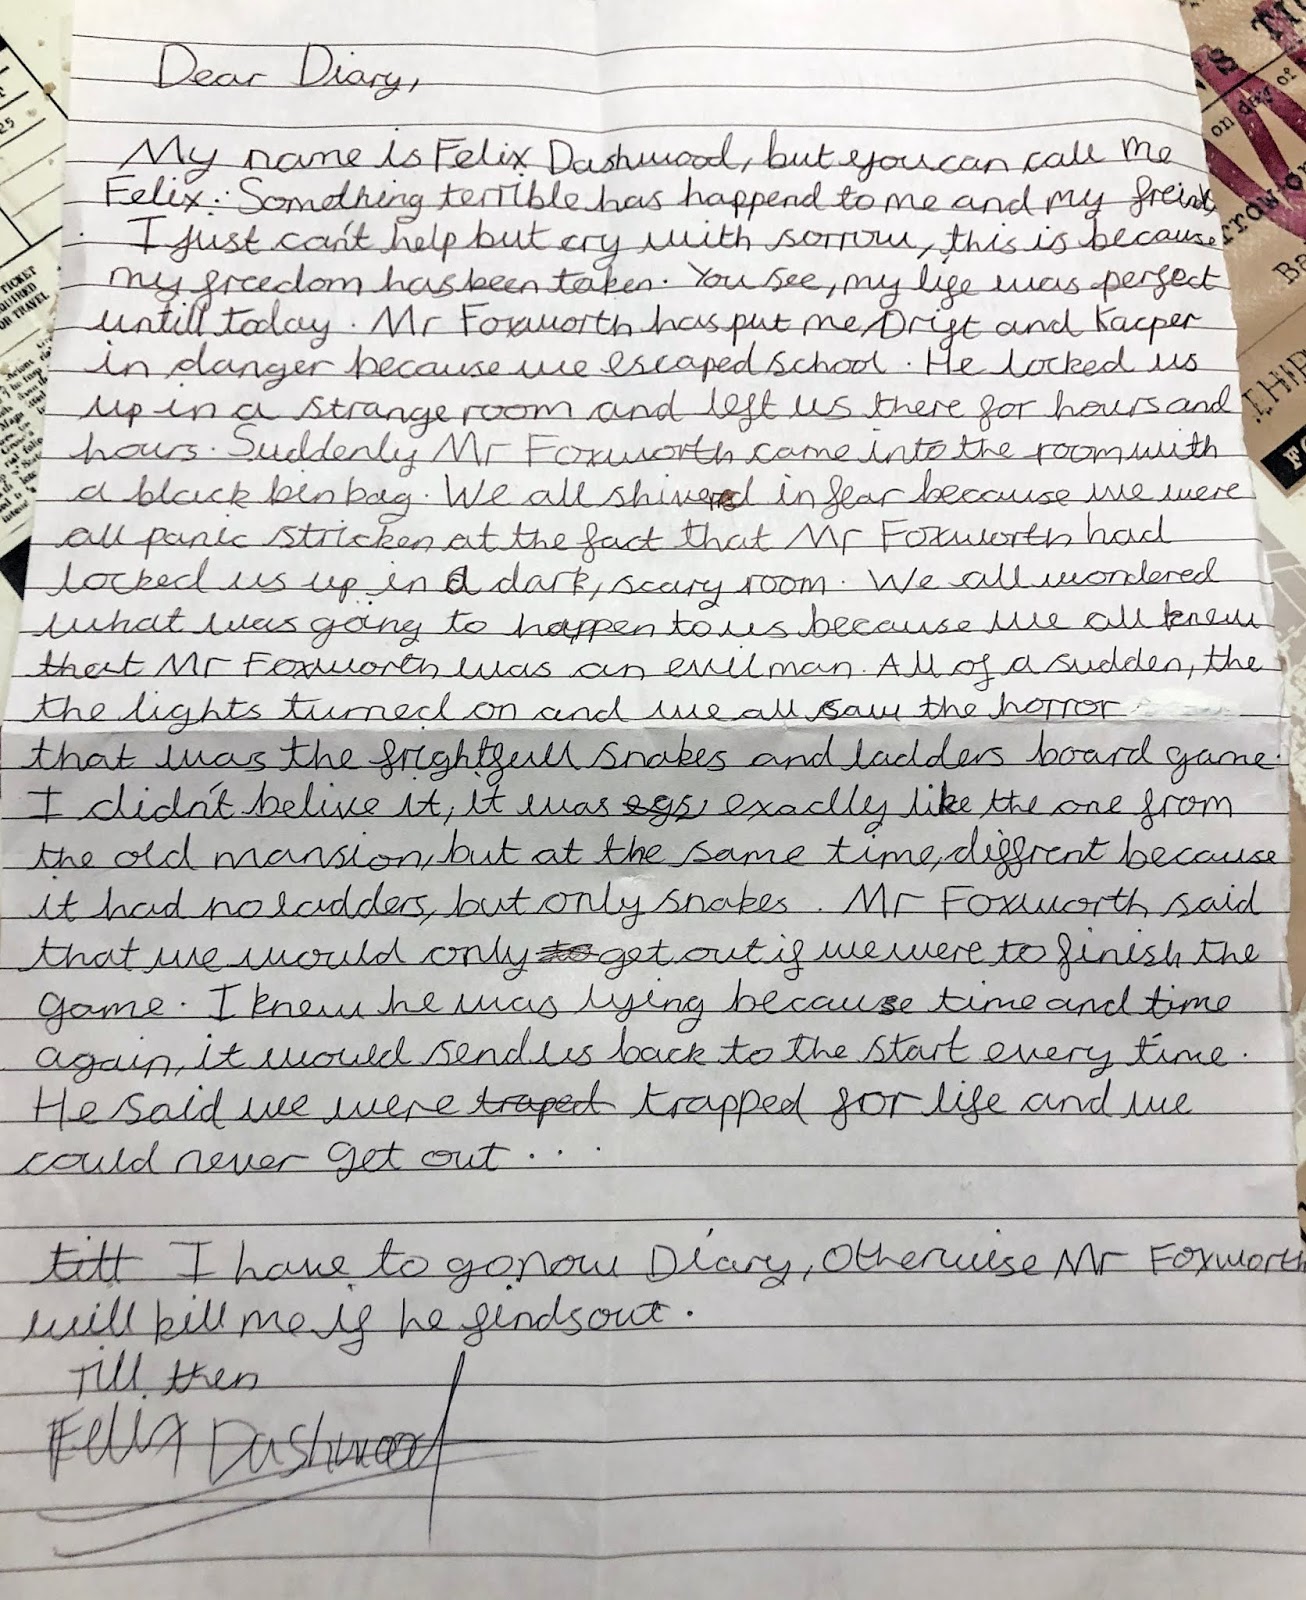 Dear Diary,
My name is Felix Dashwood, but you can call me
Felix. Something terrible has happend to me and my freinds
I just can't help but cry with sorrow, this is because
my freedom has been taken. You see, my life was perfect
untill today. Mr Foxworth has put me, Drift and Kacper
in danger because we escaped school. He locked us
up in a strange room and left us there for hours and
hours. Suddenly Mr Foxworth came into the room with
a black bin bag. We all shivered in fear because we were
all panic stricken at the fact that Mr Foxworth had
locked us up in a dark, scary room. We all wondered
what was going to happen to us because we all knew
that Mr Foxworth was an evil man. All of a sudden, the
the lights turned on and we all saw the horror
that was the frightfull snakes and ladders board game.
I didn't belive it, it was exadly like the one from
the old mansion, but at the same time, diffrent because
it had no ladders, but only snakes. Mr Foxworth said
that we would only to get out if we were to finish the
game. I knew he was lying because time and time
again, it would send us back to the start every time.
He said we were traped trapped for life and we
could never get out...
till I have to go now Diary, Otherwise Mr Foxworth
will kill me if he finds out.
Till then
Felix Dashwood
TICKET
QUIRED
OR TRAVEL
25
on day of